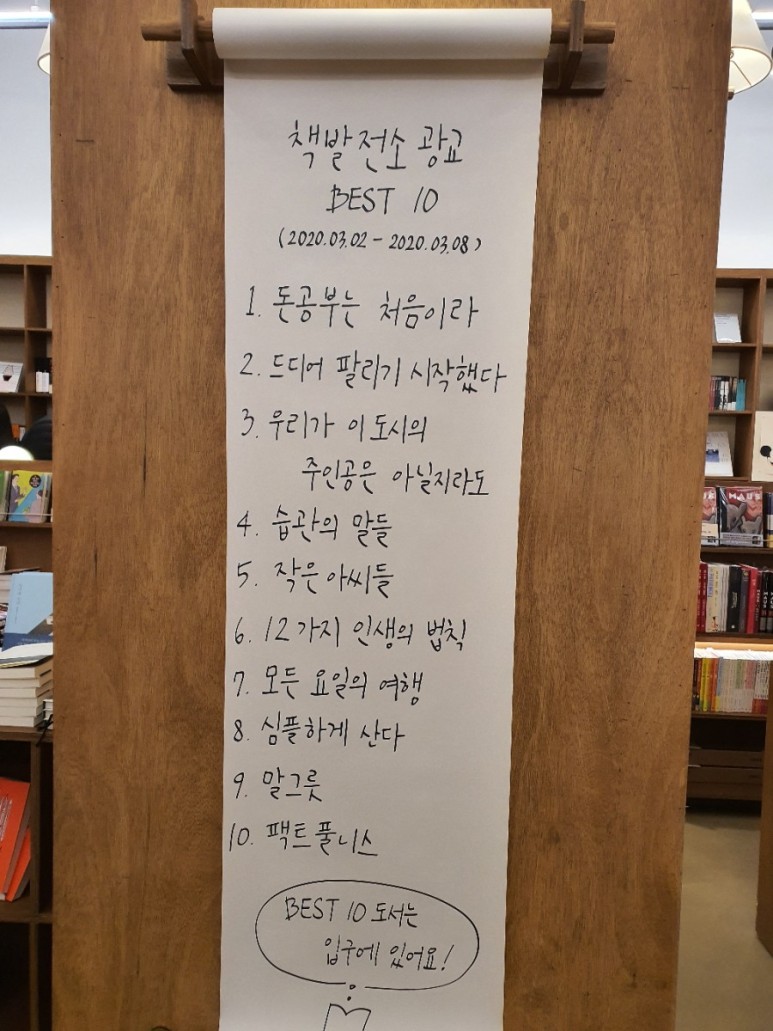 책발전소 광교
BEST 10
(2020.03.02 - 2020.03.08)
1. 돈공부는 처음이라
2. 드디어 팔리기 시작했다
3. 우리가 이 도시의
주인공은 아닐지라도
4. 습관의 말들
5. 작은 아씨들
6. 12가지 인생의 법칙
7. 모든 요일의 여행
8. 심플하게 산다
9. 말그릇
10. 팩트풀니스
BEST 10 도서는
입구에 있어요!
MAUS